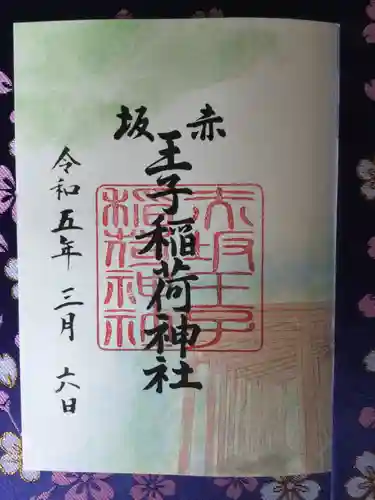 赤坂
王子稲荷神社
令和五年 三月 六日
赤坂王子
稲荷神社